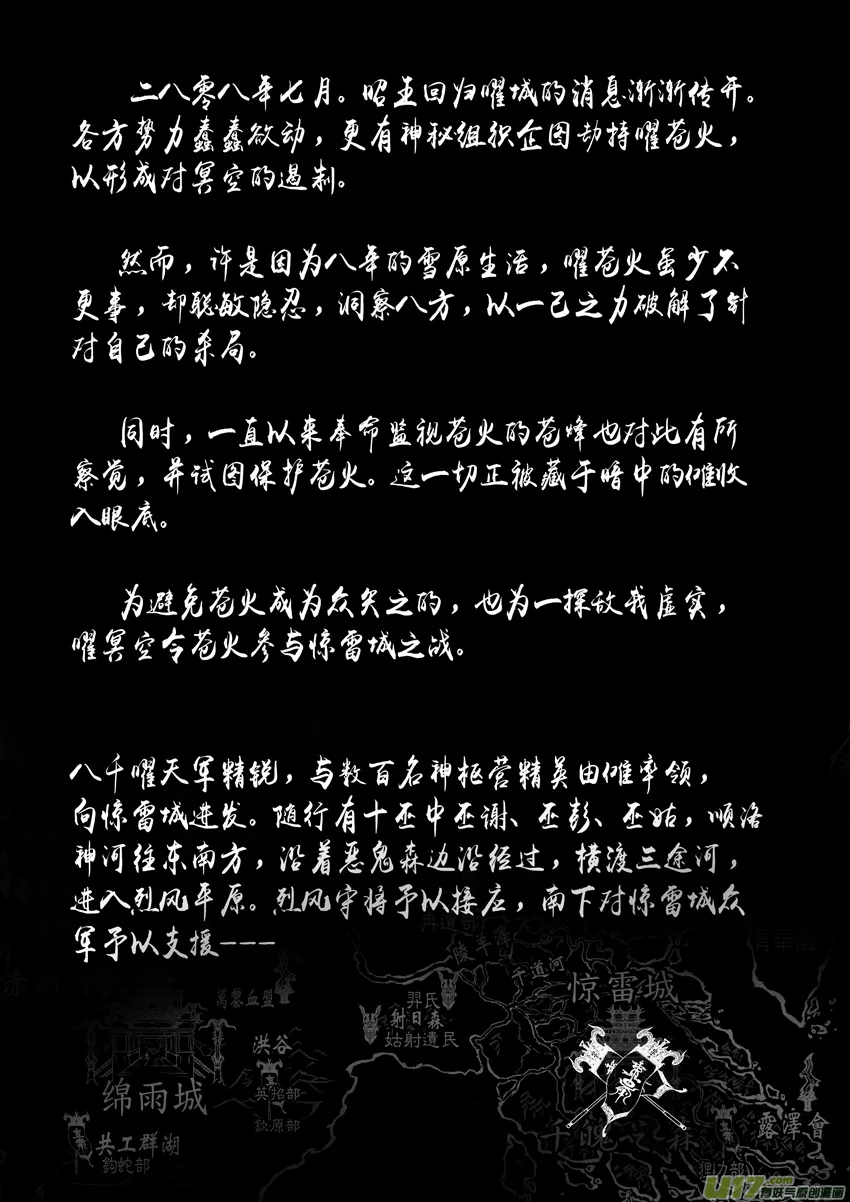 二八零八年七月。昭王回归曜城的消息渐渐传开。
各方势力蠢蠢欲动，更有神秘组织企图劫持曜苍火，
以形成对冥空的遏制。
然而，许是因为八年的雪原生活，曜苍火虽少不
更事，却聪敏隐忍，洞察八方，以一己之力破解了针
对自己的杀局。
同时，一直以来奉命监视苍火的苍峰也对此有所
察觉，并试图保护苍火。这一切正被藏于暗中的傩收
入眼底。
为避免苍火成为众矢之的，也为一探敌我虚实，
曜冥空令苍火参与惊雷城之战。
八千曜天军精锐，与数百名神枢营精英由傩率领，
向惊雷城进发。随行有十巫中巫谢、巫彭、巫姑，顺洛
神河往东南方，沿着恶鬼森边沿经过，横渡三途河，
进入烈风平原。烈风守将予以接应，南下对惊雷城众
军予以支援---
千道河
惊雷城
青华国
萬黎血盟
羿氏
射日森
姑射遺民
洪谷
英招部
欽原部
绵雨城
共工群湖
鈎蛇部
露澤會
狸力部
U17.com
有妖气原创漫画